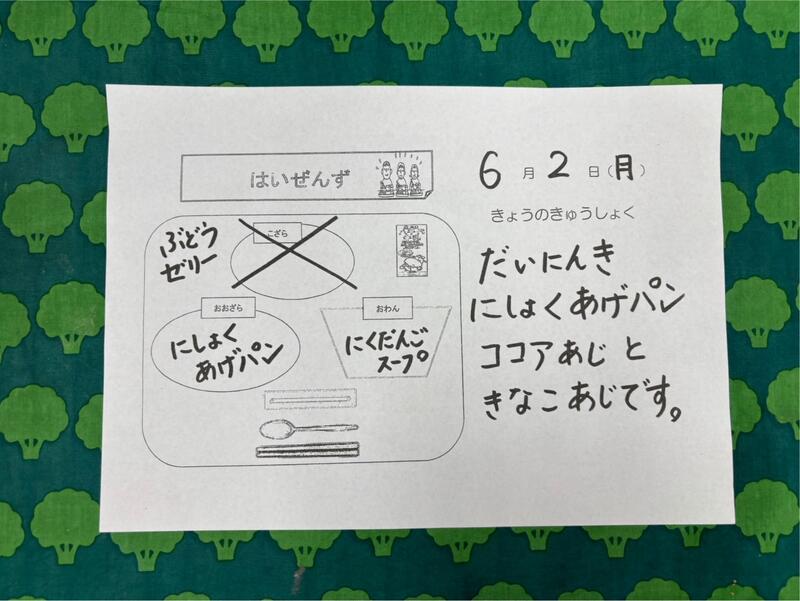 はいぜんず
6月2日(月)
きょうのきゅうしょく
ぶどう
ゼリー
こざら
おおざら
にしょく
あげパン
おわん
にくだんご
スープ
だいにんき
にしょくあげパン
ココアあじと
きなこあじです。